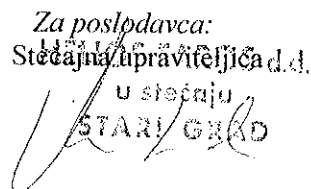 Za poslodavca:
Stečajna upraviteljica d.d.
u stečaju
STARI GRAD